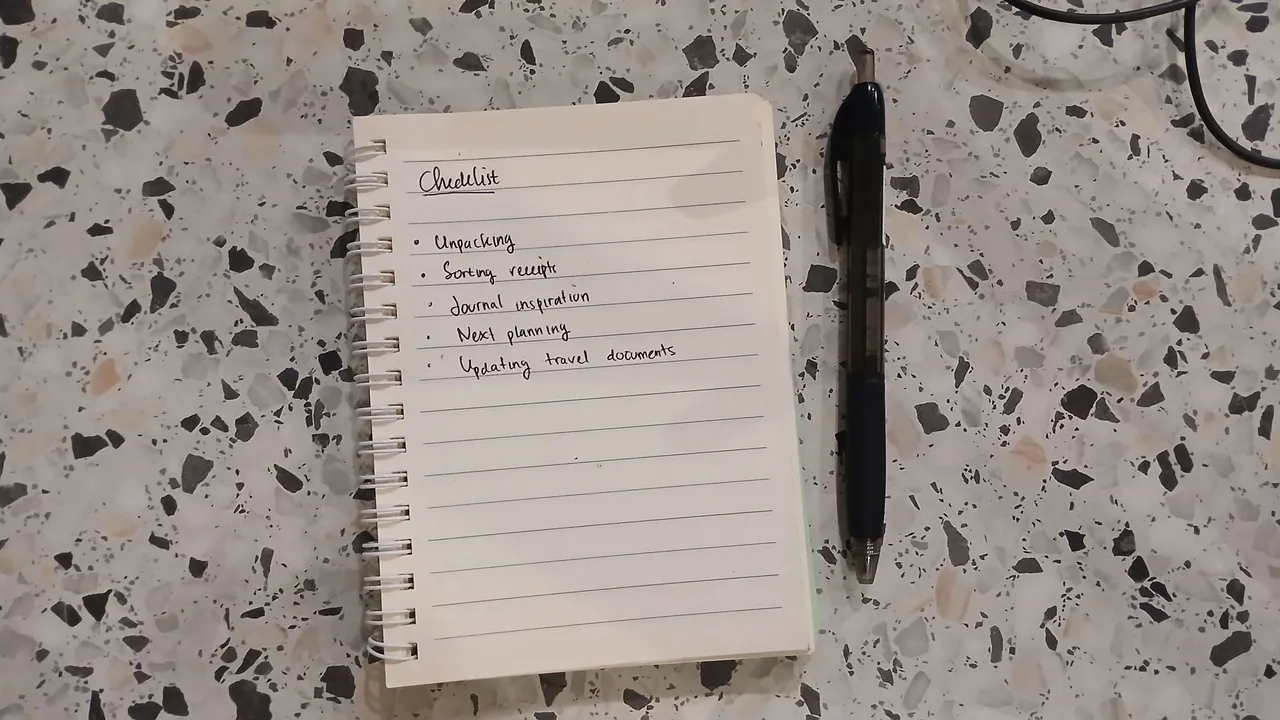 Checklist
• Unpacking
• Sorting receipts
• Journal inspiration
• Next planning
• Updating travel documents